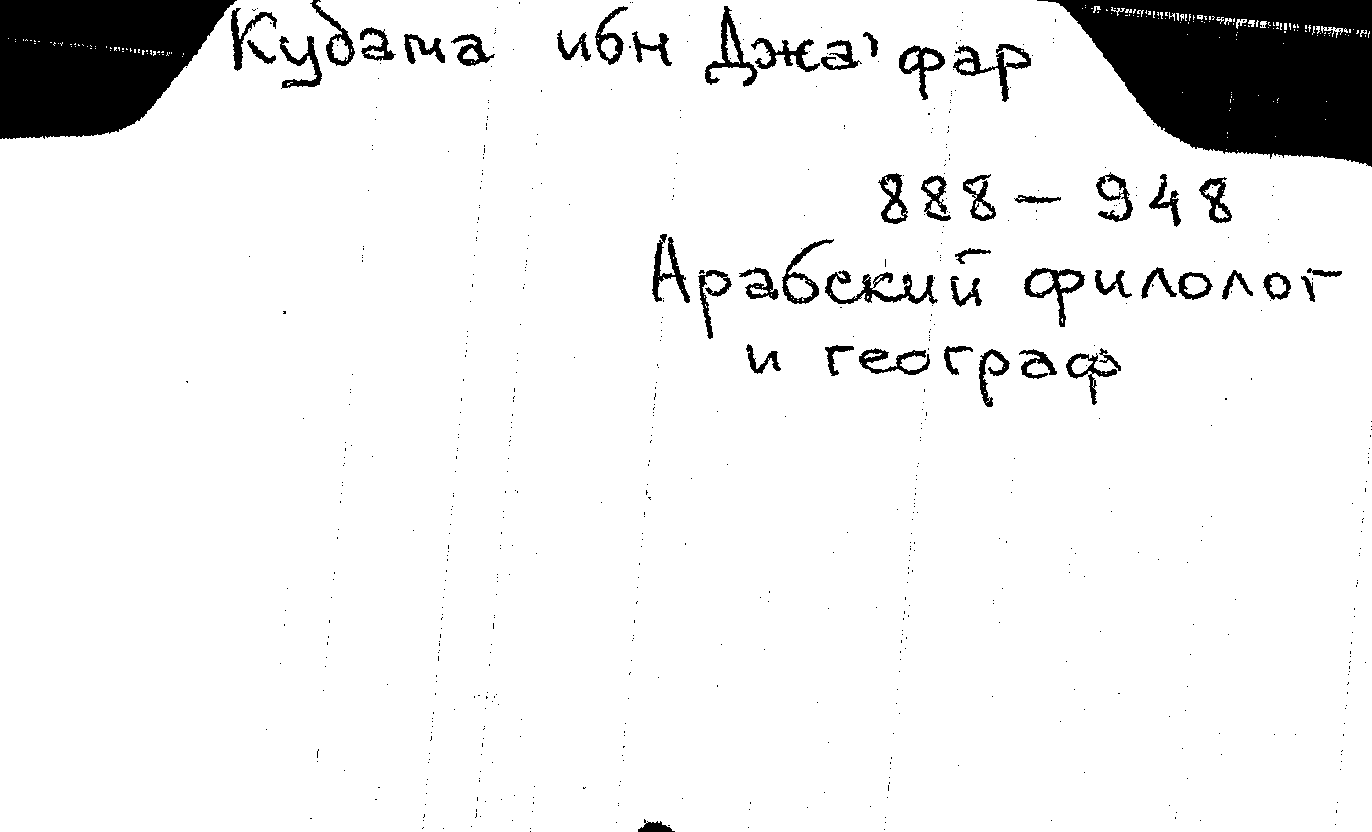 Кудама ибн Джа'фар
888 – 948
Арабский филолог
и географ